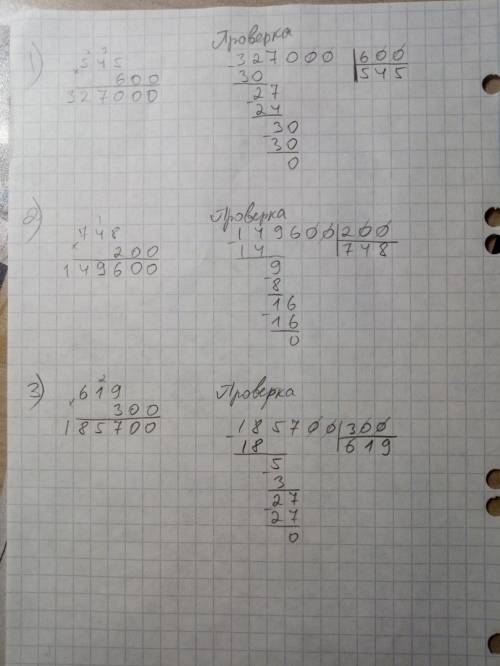 1)
2 3
545
× 600
327000
Проверка
- 327000 | 600
30 | 545
- 27
24
- 30
30
0
2)
1
748
× 200
149600
Проверка
- 149600 | 200
14 | 748
9
- 8
16
- 16
0
3)
2
619
× 300
185700
Проверка
- 185700 | 300
18 | 619
5
- 3
27
- 27
0